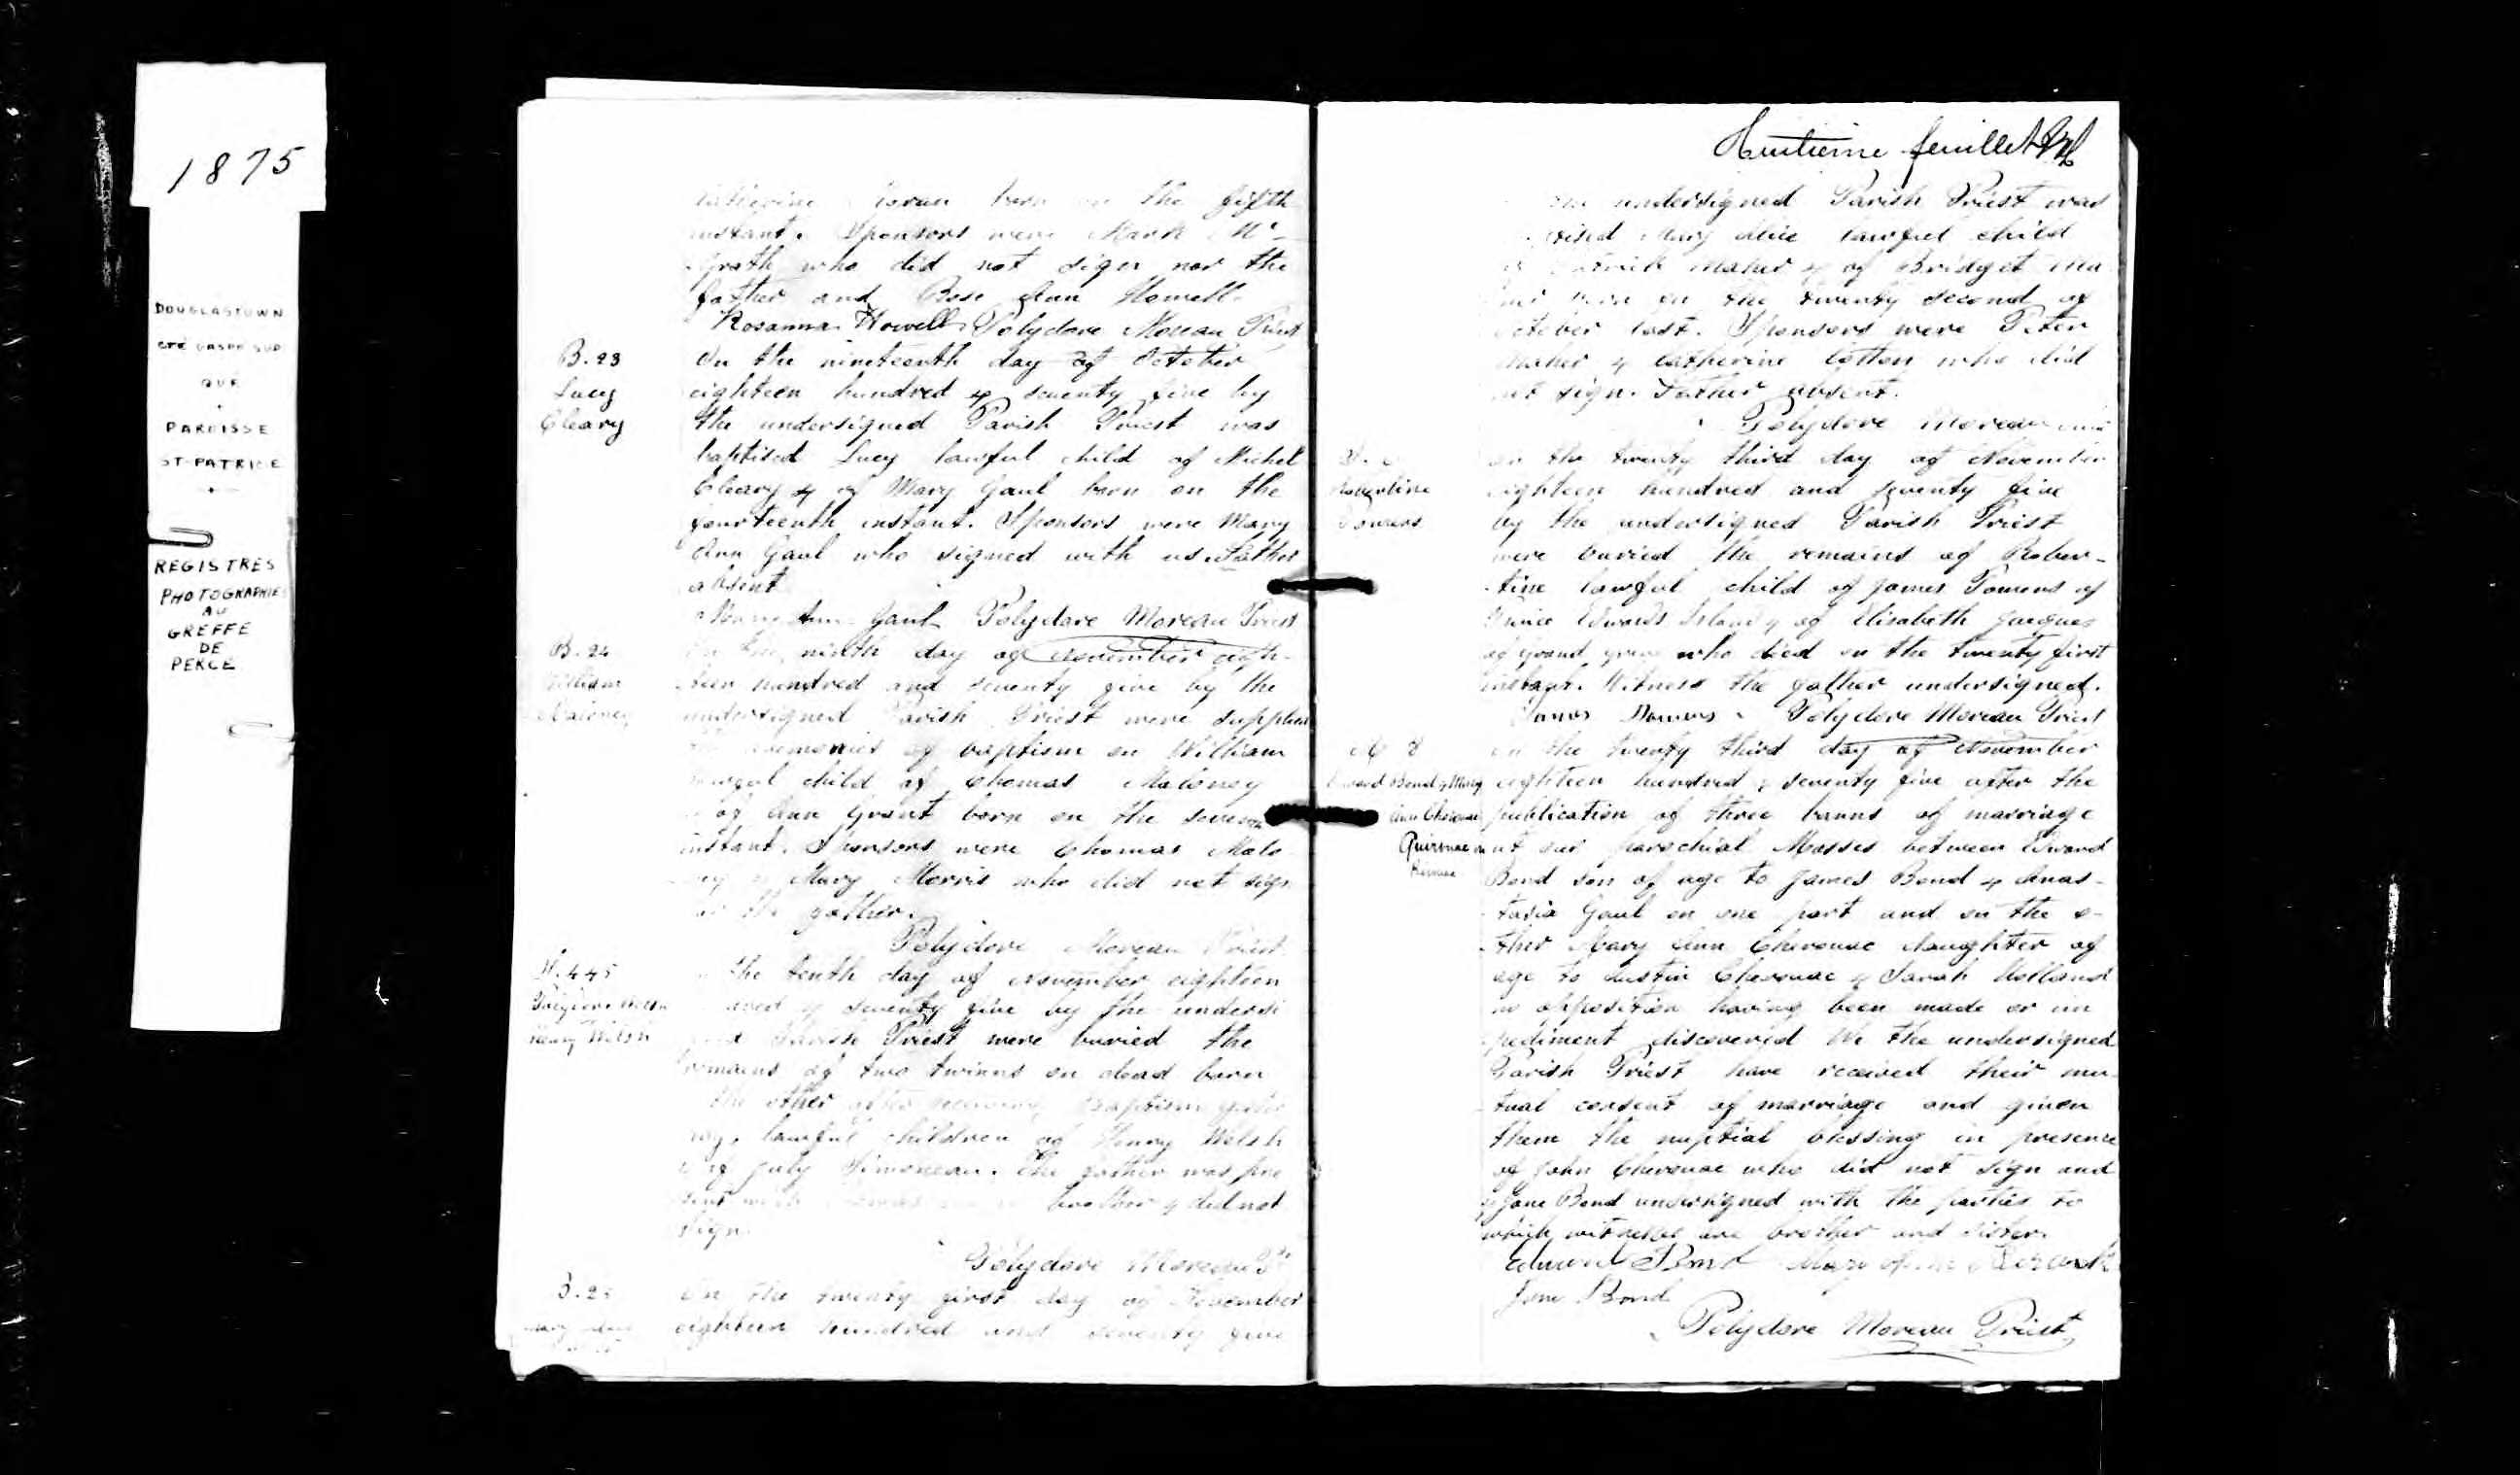 1875
DOUGLASTOWN
CTÉ GASPÉ SUD
QUÉ
PAROISSE
ST-PATRICE
REGISTRES
PHOTOGRAPHIÉS
AU
GREFFE
DE
PERCÉ
born on the fifth
instant. Sponsors were Mark Mc
Grath who did not sign nor the
father and Rose Ann Howell.
Rosanna Howell Polydore Moreau Priest
B. 23
Lucy
Cleary
On the nineteenth day of October
eighteen hundred & seventy five by
the undersigned Parish Priest was
baptised Lucy lawful child of Michel
Cleary & of Mary Gaul born on the
fourteenth instant. Sponsors were Mary
Ann Gaul who signed with us. Father
absent
Mary Ann Gaul Polydore Moreau Priest
B. 24
William
Maloney
On the ninth day of November eigh-
teen hundred and seventy five by the
undersigned Parish Priest were supplied
the ceremonies of baptism on William
lawful child of Thomas Maloney
& of Ann Grant born on the seventh
instant. Sponsors were Thomas Malo
ney & Mary Morris who did not sign
nor the father.
Polydore Moreau Priest
H. 4 4 5
Henry Welsh
the tenth day of November eighteen
& seventy five by the undersi
Parish Priest were buried the
remains of two twinns on dead born
the other after receiving baptism
lawful children of Henry Welsh
& of July Simoneau. The father was pre
sent with brother & did not
sign.
Polydore Moreau Pt
B. 25
Mary Alice
On the twenty first day of November
eighteen hundred and seventy five
Huitième feuillet
the undersigned Parish Priest was
Mary Alice lawful child
of Patrick Maher & of Bridget Ma
her born on the twenty second of
October last. Sponsors were Peter
Maher & Catherine Cotton who did
not sign. Father absent.
Polydore Moreau
Robertine
Powers
On the twenty third day of November
eighteen hundred and seventy five
by the undersigned Parish Priest
were buried the remains of Rober-
tine lawful child of James Powers of
Prince Edwards Island & of Elisabeth Jacques
of Grand Greve who died on the twenty first
instant. Witness the father undersigned.
James Powers Polydore Moreau Priest
M 8
Edward Bond & Mary
Ann Chevouac
On the twenty third day of November
eighteen hundred & seventy five after the
publication of three banns of marriage
at our parochial Masses between Edward
Bond son of age to James Bond & Anas-
tasia Gaul on one part and on the o-
ther Mary Ann Chevouac daughter of
age to Austin Chevouac & Sarah Holland
no opposition having been made or im
pediment discovered We the undersigned
Parish Priest have received their mu-
tual consent of marriage and given
them the nuptial blessing in presence
of John Chevouac who did not sign and
of Jane Bond undersigned with the parties to
which witnesses are brother and sister.
Edward Bond Mary Ann
Jane Bond
Polydore Moreau Priest